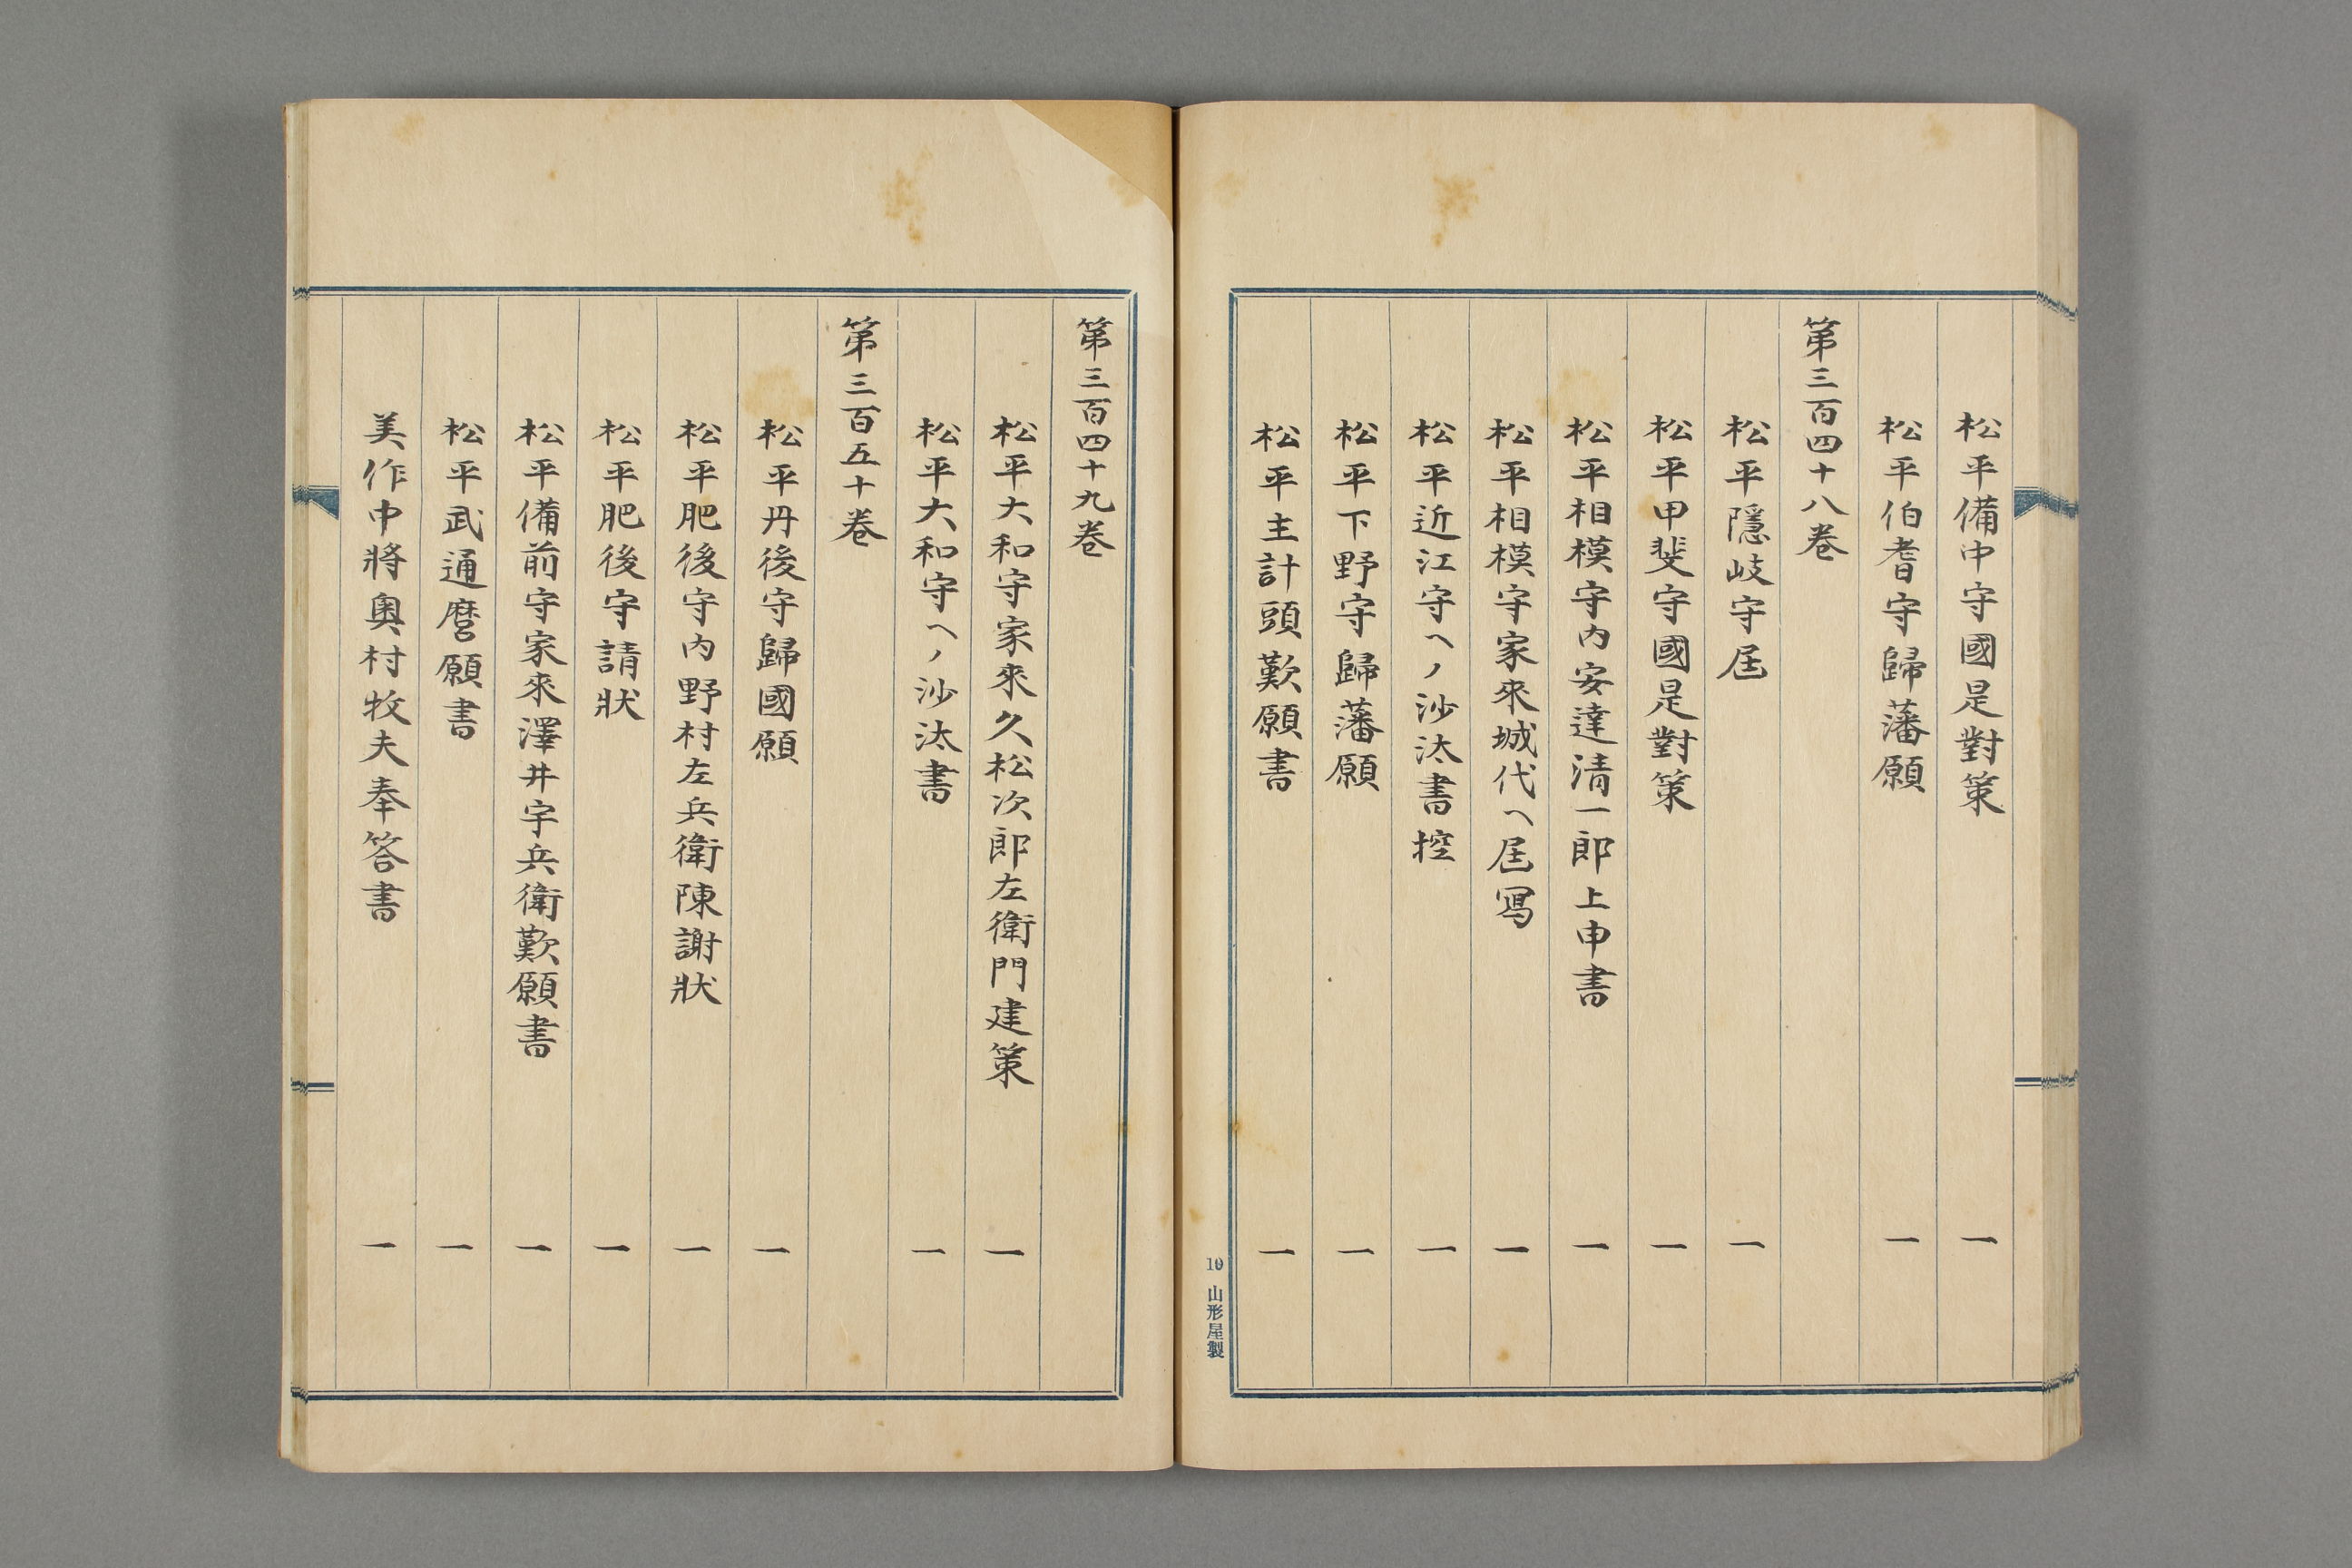 松平備中守國是對策 一
松平伯耆守歸藩願 一
第三百四十八巻
松平隱岐守届 一
松平甲斐守國是對策 一
松平相模守内安達清一郎上申書 一
松平相模守家來城代ヘ届寫 一
松平近江守ヘノ沙汰書控 一
松平下野守歸藩願 一
松平主計頭歎願書 一
10 山形屋製
第三百四十九巻
松平大和守家來久松次郎左衛門建策 一
松平大和守ヘノ沙汰書 一
第三百五十巻
松平丹後守歸國願 一
松平肥後守内野村左兵衛陳謝狀 一
松平肥後守請狀 一
松平備前守家來澤井宇兵衛歎願書 一
松平武通麿願書 一
美作中將奥村牧夫奉答書 一